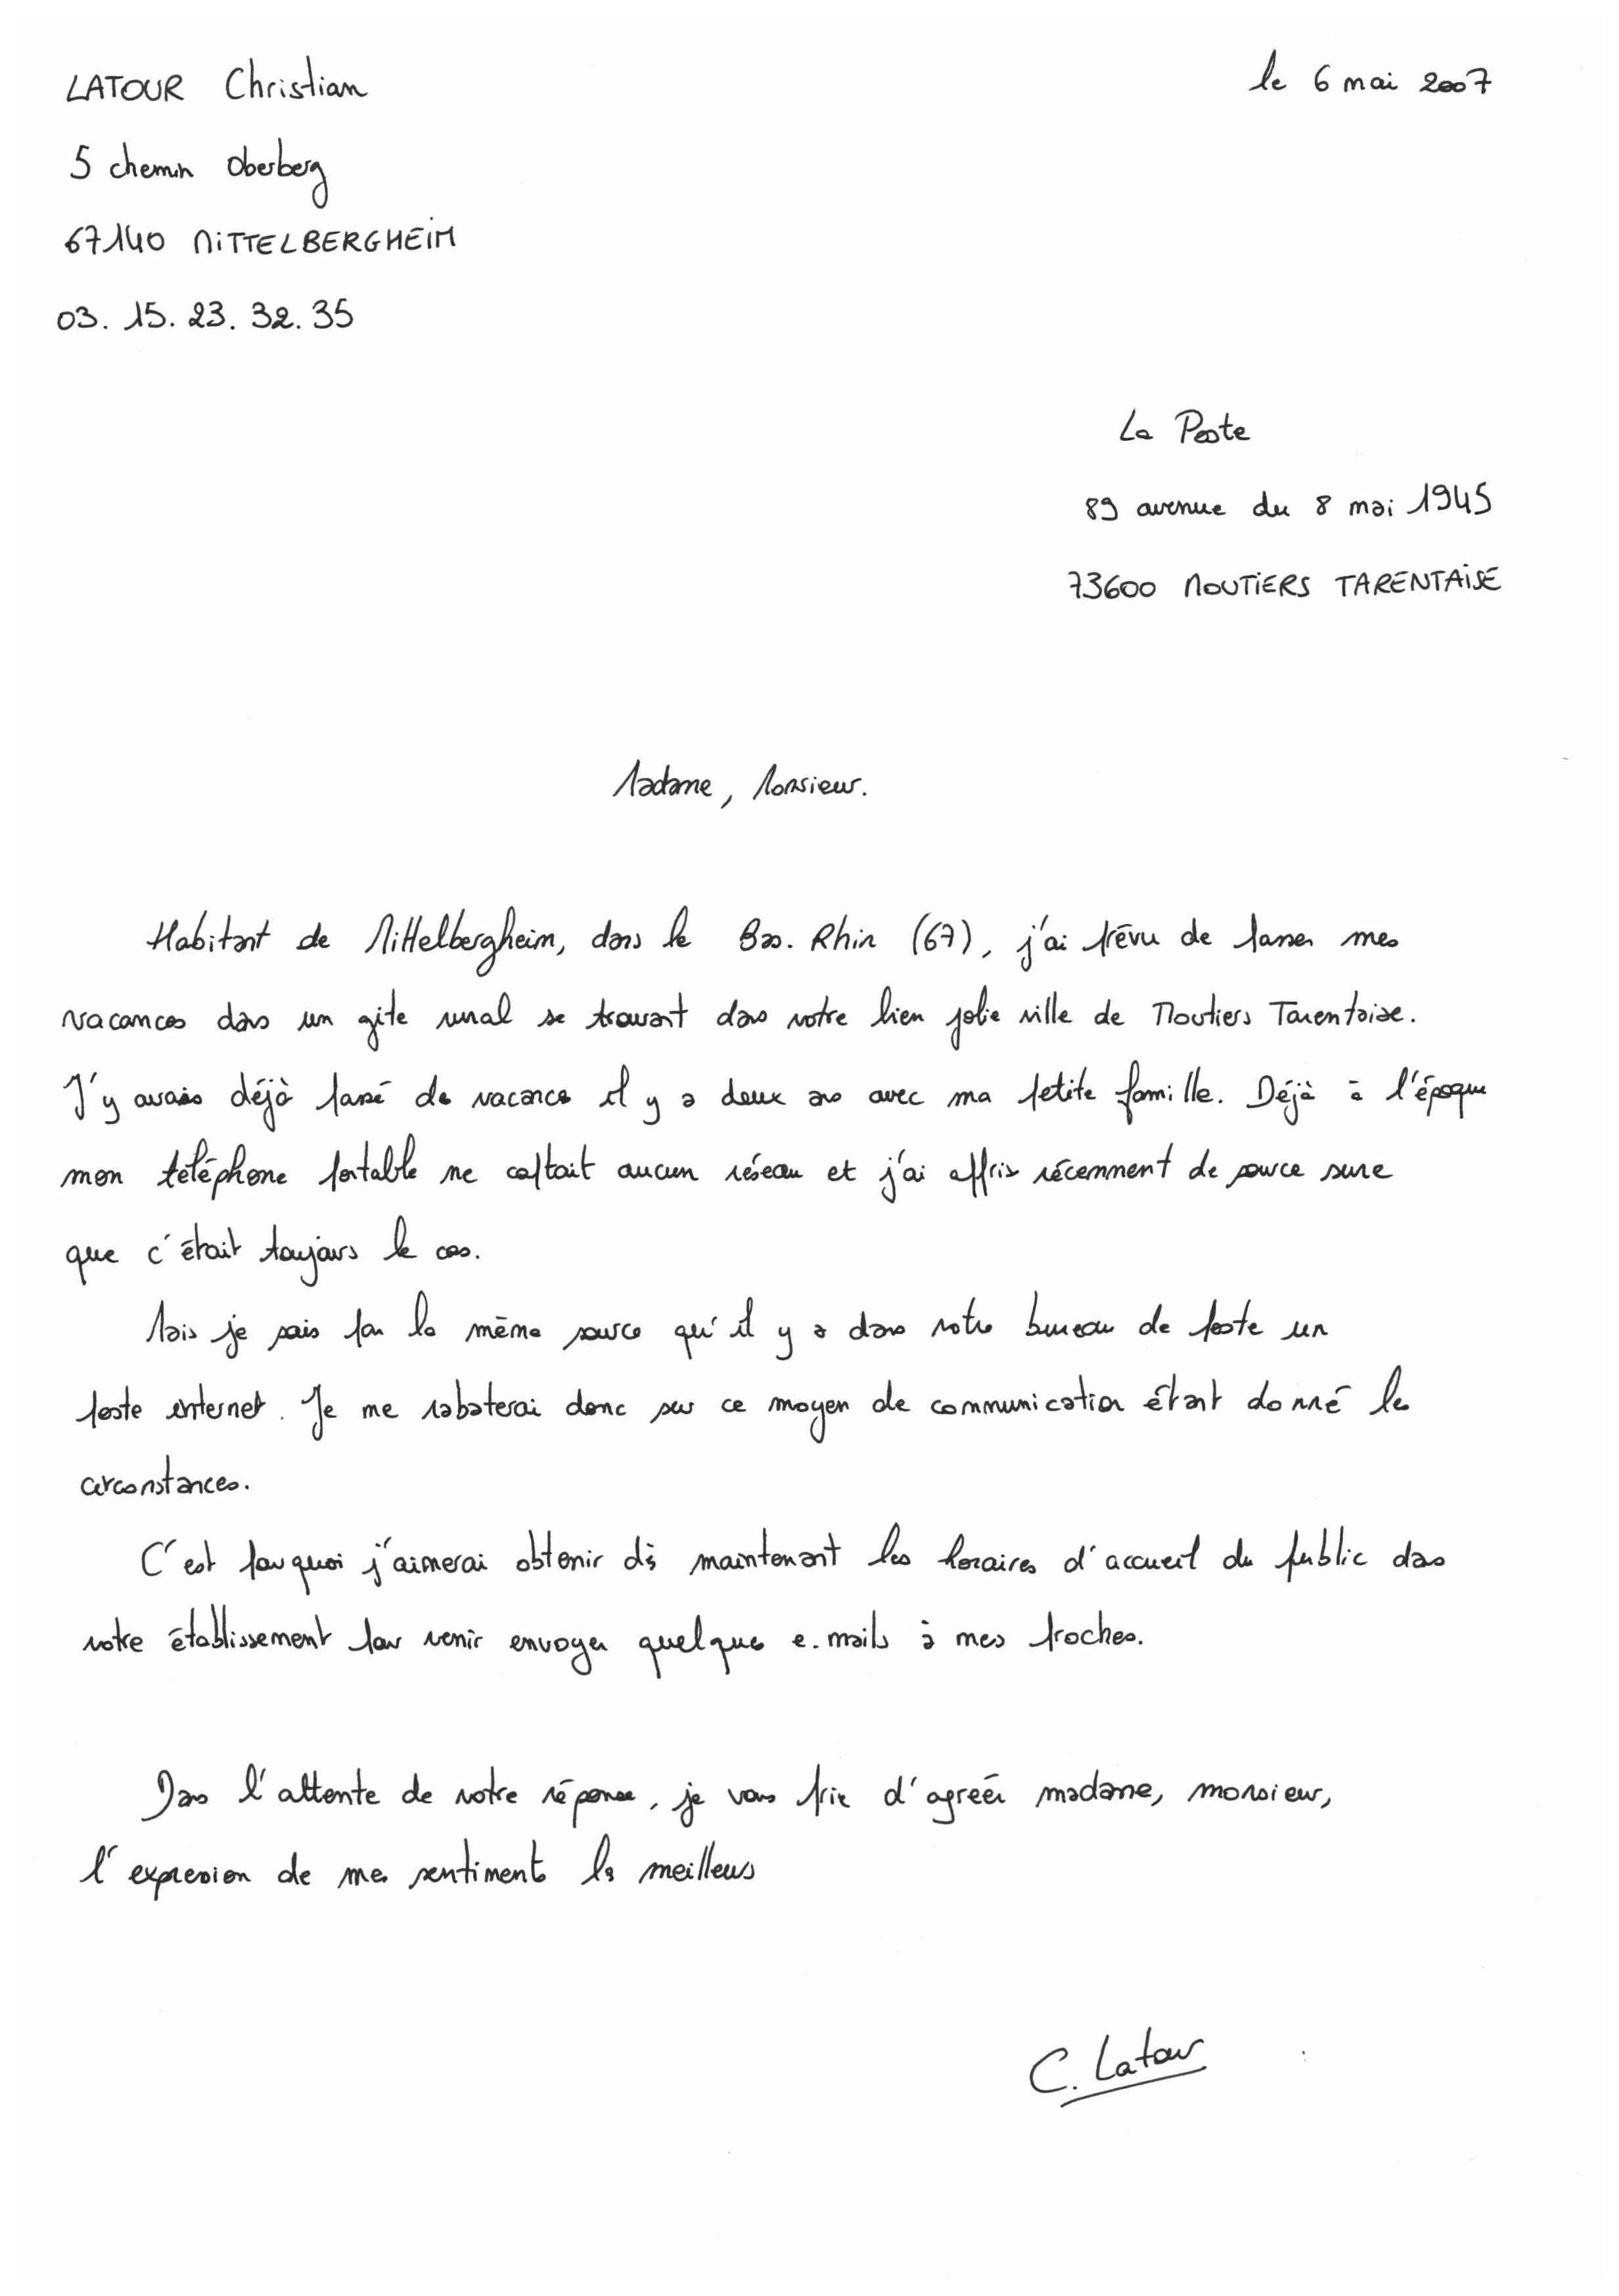 LATOUR Christian
le 6 mai 2007
5 chemin Oberberg
67140 MITTELBERGHEIM
03. 15. 23. 32. 35
La Poste
89 avenue du 8 mai 1945
73600 MOUTIERS TARENTAISE
Madame, Monsieur.
Habitant de Mittelbergheim, dans le Bas-Rhin (67), j'ai prévu de passer mes
vacances dans un gite rural se trouvant dans votre bien jolie ville de Moutiers Tarentaise.
J'y avais déjà passé des vacances il y a deux ans avec ma petite famille. Déjà à l'époque
mon téléphone portable ne captait aucun réseau et j'ai appris récemment de source sure
que c'était toujours le cas.
Mais je sais par la même source qu'il y a dans votre bureau de poste un
poste internet. Je me rabaterai donc sur ce moyen de communication étant donné les
circonstances.
C'est pourquoi j'aimerai obtenir dès maintenant les horaires d'accueil du public dans
votre établissement pour venir envoyer quelques e-mails à mes proches.
Dans l'attente de votre réponse, je vous prie d'agréér madame, monsieur,
l'expression de mes sentiments les meilleurs
C. Latour